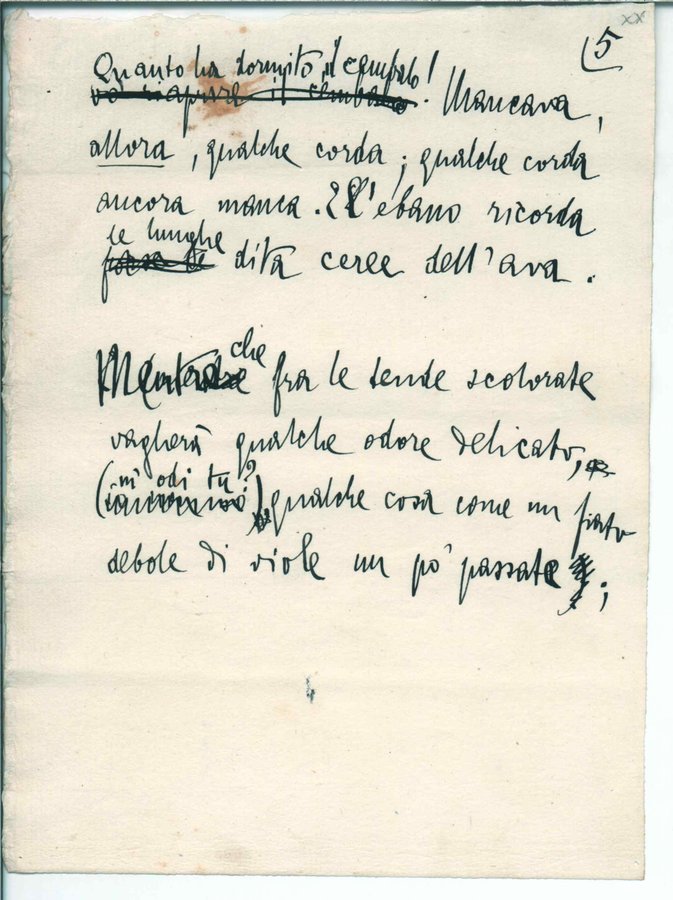 xx
5
Quanto ha dormito, il cembalo!
Mancava,
allora, qualche corda; qualche corda
ancora manca. E l'ebano ricorda
le lunghe
dita ceree dell'ava.
Mentre che fra le tende scolorate
vagherà qualche odore delicato,
(m'odi tu?) qualche cosa come un fiato
debole di viole un po' passate;